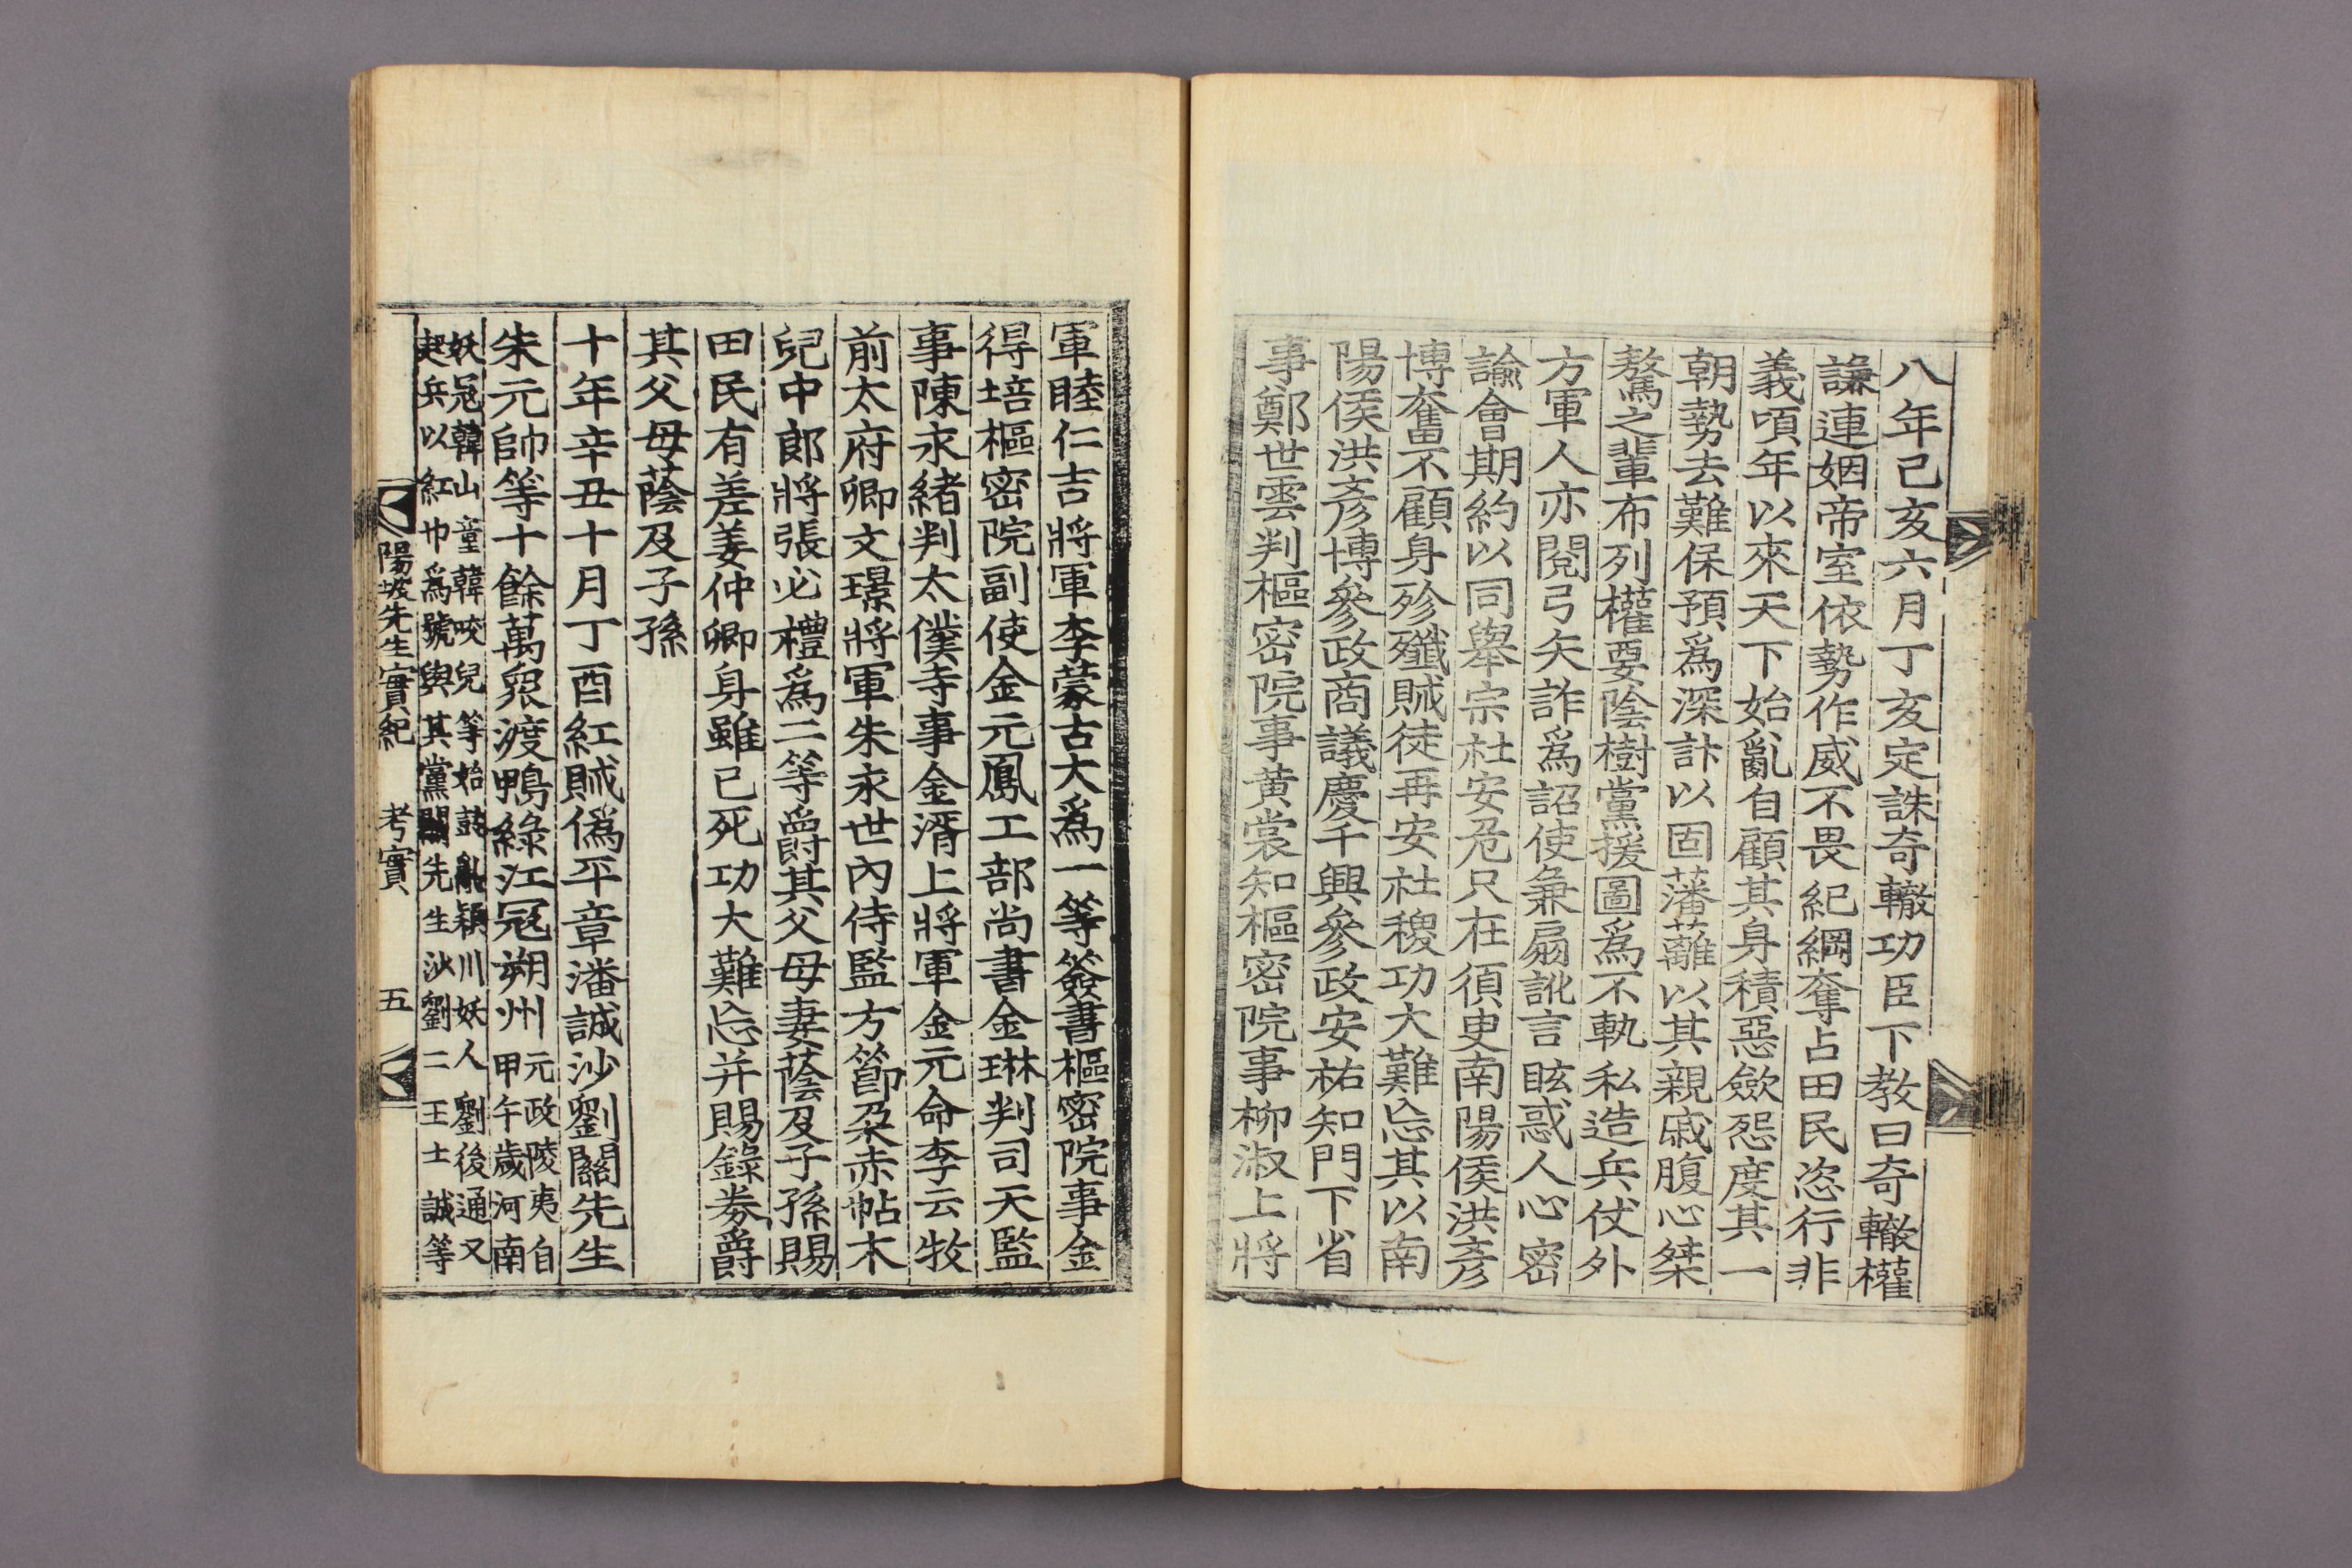 八年己亥六月丁亥定誅奇轍功臣下教曰奇轍權
謙連姻帝室依勢作威不畏紀綱奪占田民恣行非
義頃年以來天下始亂自顧其身積惡斂怨度其一
朝勢去難保預爲深計以固藩蘺以其親戚腹心桀
驁之輩布列權要陰樹黨援圖爲不軌私造兵仗外
方軍人亦閱弓矢詐爲詔使兼扇訛言眩惑人心密
諭會期約以同擧宗社安危只在須臾南陽侯洪彥
博奮不顧身殄殲賊徒再安社稷功大難忘其以南
陽侯洪彥博參政商議慶千興參政安祐知門下省
事鄭世雲判樞密院事黃裳知樞密院事柳淑上將
軍睦仁吉將軍李蒙古大爲一等簽書樞密院事金
得培樞密院副使金元鳳工部尚書金琳判司天監
事陳永緖判太僕寺事金湑上將軍金元命李云牧
前太府卿文璟將軍朱永世內侍監方節朶赤帖木
兒中郎將張必禮爲二等爵其父母妻蔭及子孫賜
田民有差姜仲卿身雖已死功大難忘并賜錄券爵
其父母蔭及子孫
十年辛丑十月丁酉紅賊僞平章潘誠沙劉關先生
朱元帥等十餘萬衆渡鴨綠江冦朔州
元政陵夷自
甲午歲河南
妖冦韓山童韓咬兒等始鼓亂穎川妖人劉後通又
起兵以紅巾爲號與其黨關先生沙劉二王士誠等
陽坡先生實紀 考實 五